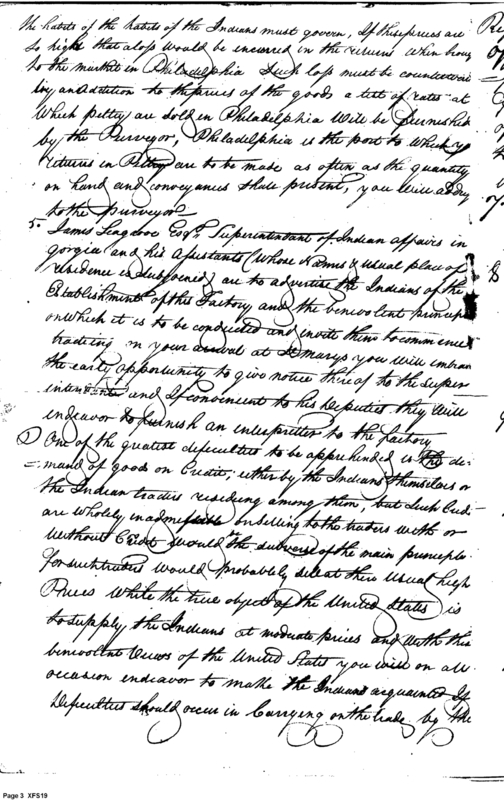 the habits of the habits of the Indians must govern, If these prices are
so hight that a loss would be incurred in the returns when broug
to the market in Philadelphia Such loss must be
by an addition to the prices of the goods a test of rates at
Which peltry are sold in Philadelphia will be furnished
by the Purveyor, Philadelphia is the port to which yr
returns in Peltry are to be made as often as the quantity
on hand and conveyances shall present, you will
to the purveyor
5. James Seagrove Esqr. Superintendant of Indian affairs in
gorgia and his Assistants (whose Names & usual place of
residence is Subjoined) are to advertise the Indians of the
Establishment of this Factory and the benevolent principle
on which it is to be conducted and invite them to commence
tradeing on your arrival at St marys you will embrace
the early opportunity to give notice thereof to the Super
intendent and If convenient to his Deputies they will
endeavor to furnish an interpreter to the factory
One of the greatest dificulties to be apprehended is the de-
=mand of goods on Credit, either by the Indians themselves or
the Indian traders residing among them, but Such Credi
are wholely inadmissable on selling to the traders with or
without Credit would be the subverse of the main principle
For such traders would probably sell at there usual high
Prices While the true object of the United States is
to supply the Indians at moderate prices and with this
benevolent Views of the United States you will on all
occasion endeavor to make the Indians acquainted If
Deficulties should occur in Carrying on the trade by the
Page 3 XFS19